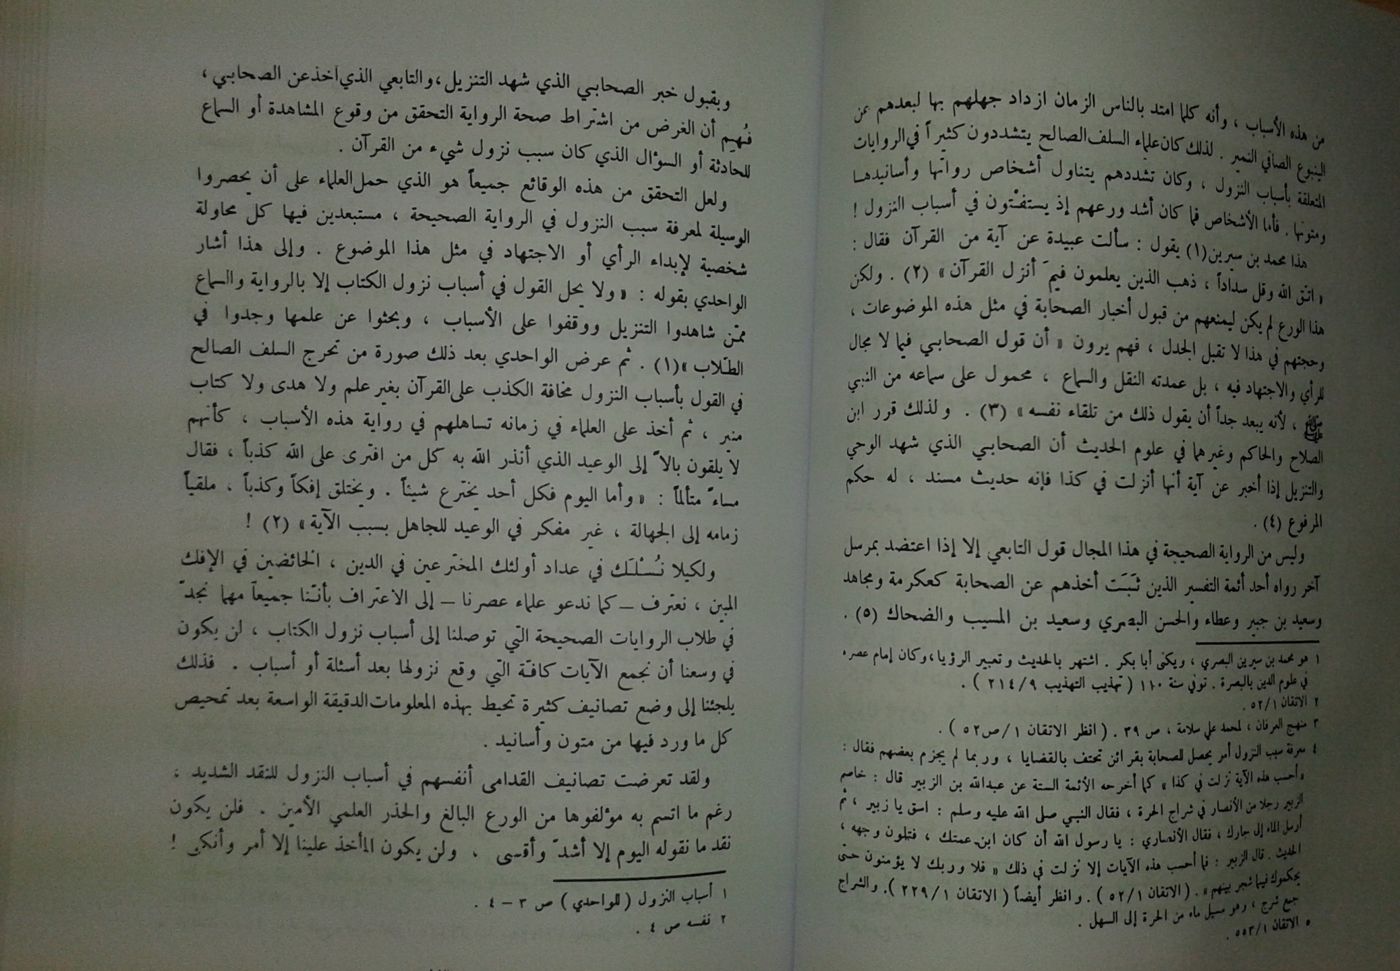 من هذه الأسباب ، وأنه كلما امتد بالناس الزمان ازداد جهلهم بها لبعدهم عن
الينبوع الصافي النمير . لذلك كان علماء السلف الصالح يتشددون كثيراً في الروايات
المتعلقة بأسباب النزول ، وكان تشددهم يتناول أشخاص رواتها وأسانيدها
ومتونها . فأما الأشخاص فما كان أشد ورعهم إذ يستفتون في أسباب النزول !
هذا محمد بن سيرين(١) يقول : سألت عبيدة عن آية من القرآن فقال :
« اتق الله وقل سداداً ، ذهب الذين يعلمون فيمَ أنزل القرآن » (٢) . ولكن
هذا الورع لم يكن ليمنعهم من قبول أخبار الصحابة في مثل هذه الموضوعات ،
وحجتهم في هذا لا تقبل الجدل ، فهم يرون « أن قول الصحابي فيما لا مجال
للرأي والاجتهاد فيه ، بل عمدته النقل والسماع ، محمول على سماعه من النبي
ﷺ ، لأنه يبعد جداً أن يقول ذلك من تلقاء نفسه » (٣) . ولذلك قرر ابن
الصلاح والحاكم وغيرهما في علوم الحديث أن الصحابي الذي شهد الوحي
والتنزيل إذا أخبر عن آية أنها أنزلت في كذا فإنه حديث مسند ، له حكم
المرفوع (٤) .
وليس من الرواية الصحيحة في هذا المجال قول التابعي إلا إذا اعتضد بمرسل
آخر رواه أحد أئمة التفسير الذين ثَبَتَ أخذهم عن الصحابة كعكرمة ومجاهد
وسعيد بن جبير وعطاء والحسن البصري وسعيد بن المسيب والضحاك (٥) .
١ هو محمد بن سيرين البصري ، ويكنى أبا بكر . اشتهر بالحديث وتعبير الرؤيا،وكان إمام عصره
في علوم الدين بالبصرة . توفي سنة ١١٠ ( تهذيب التهذيب ٢١٤/٩ ) .
٢ الاتقان ٥٢/١ .
٣ منهج العرفان ، لمحمد علي سلامة ، ص ٣٩ . ( انظر الاتقان ١ /ص٥٢ ) .
٤ معرفة سبب النزول أمر يحصل للصحابة بقرائن تحتف بالقضايا ، وربما لم يجزم بعضهم فقال :
« أحسب هذه الآية نزلت في كذا » كما أخرجه الأئمة الستة عن عبدالله بن الزبير قال : خاصم
الزبير رجلا من الأنصار في شراج الحرة ، فقال النبي صلى الله عليه وسلم : اسق يا زبير ، ثم
أرسل الماء إلى جارك ، فقال الأنصاري : يا رسول الله أن كان ابن عمتك ، فتلون وجهه ،
الحديث . قال الزبير : فما أحسب هذه الآيات إلا نزلت في ذلك « فلا وربك لا يؤمنون حتى
يحكموك فيما شجر بينهم » . (الاتقان ٥٢/١ ) . وانظر أيضاً ( الاتقان ٢٢٩/١ ). والشراج
جمع شرج ، وهو مسيل ماء من الحرة إلى السهل .
٥ الاتقان ٥٥٣/١ .
وبقبول خبر الصحابي الذي شهد التنزيل،والتابعي الذي أخذ عن الصحابي ،
فُهِم أن الغرض من اشتراط صحة الرواية التحقق من وقوع المشاهدة أو السماع
للحادثة أو السؤال الذي كان سبب نزول شيء من القرآن .
ولعل التحقق من هذه الوقائع جميعاً هو الذي حمل العلماء على أن يحصروا
الوسيلة لمعرفة سبب النزول في الرواية الصحيحة ، مستبعدين فيها كل محاولة
شخصية لإبداء الرأي أو الاجتهاد في مثل هذا الموضوع . وإلى هذا أشار
الواحدي بقوله : « ولا يحل القول في أسباب نزول الكتاب إلا بالرواية والسماع
ممّن شاهدوا التنزيل ووقفوا على الأسباب ، وبحثوا عن علمها وجدوا في
الطّلاب »(١) . ثم عرض الواحدي بعد ذلك صورة من تحرج السلف الصالح
في القول بأسباب النزول مخافة الكذب على القرآن بغير علم ولا هدى ولا كتاب
منير ، ثم أخذ على العلماء في زمانه تساهلهم في رواية هذه الأسباب ، كأنهم
لا يلقون بالاً إلى الوعيد الذي أنذر الله به كل من افترى على الله كذباً ، فقال
مساءً متألماً : « وأما اليوم فكل أحد يخترع شيئاً . ويختلق إفكاً وكذباً ، ملقياً
زمامه إلى الجهالة ، غير مفكر في الوعيد للجاهل بسبب الآية » (٢) !
ولكيلا نُسْلَك في عداد أولئك المخترعين في الدين ، الخائضين في الإفك
المبين ، نعترف — كما ندعو علماء عصرنا — إلى الاعتراف بأنّنا جميعاً مهما نجدّ
في طلاب الروايات الصحيحة التي توصلنا إلى أسباب نزول الكتاب ، لن يكون
في وسعنا أن نجمع الآيات كافّة التي وقع نزولها بعد أسئلة أو أسباب . فذلك
يلجئنا إلى وضع تصانيف كثيرة تحيط بهذه المعلومات الدقيقة الواسعة بعد تمحيص
كل ما ورد فيها من متون وأسانيد .
ولقد تعرضت تصانيف القدامى أنفسهم في أسباب النزول للنقد الشديد ،
رغم ما اتسم به مؤلفوها من الورع البالغ والحذر العلمي الأمين . فلن يكون
نقد ما نقوله اليوم إلا أشدّ وأقسى ، ولن يكون المأخذ علينا إلا أمر وأنكى !
١ أسباب النزول ( للواحدي ) ص ٣ – ٤ .
٢ نفسه ص ٤ .